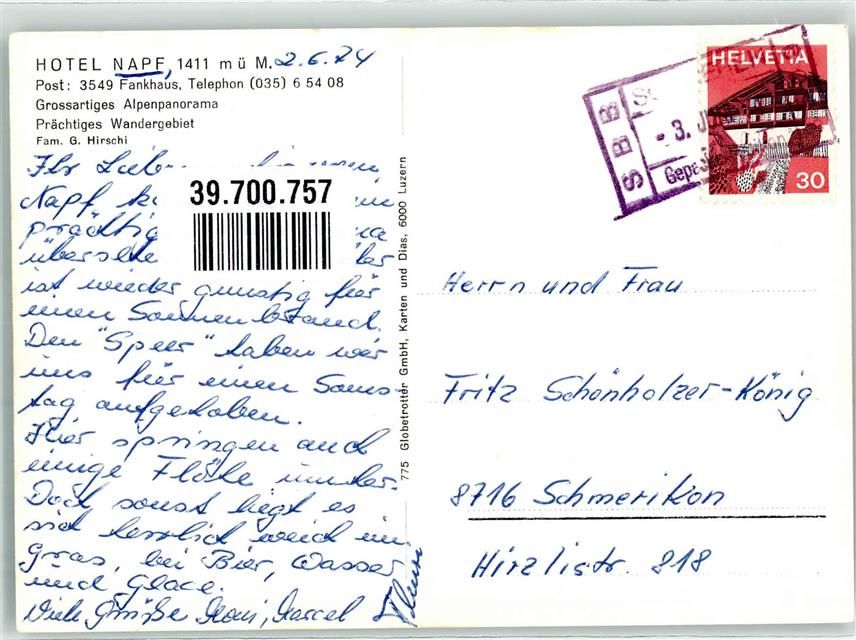 HOTEL NAPF, 1411 m ü M. 2.6.74
Post: 3549 Fankhaus, Telephon (035) 6 54 08
Grossartiges Alpenpanorama
Prächtiges Wandergebiet
Fam. G. Hirschi
Ihr Lieben
Napf
prächtig
ist wieder günstig für
einen Sonnenbrand.
Den "Speer" haben wir
uns für einen Sams-
tag aufgehoben.
Hier springen auch
einige Flöhe munter.
Doch sonst liegt es
sich herrlich weich im
Gras, bei Bier, Wasser
und Glace.
Viele Grüße Marcel
39.700.757
775 Globetrotter GmbH, Karten und Dias, 6000 Luzern
SBB
- 3. JU
Gepä
HELVETIA
30
Herrn und Frau
Fritz Schönholzer-König
8716 Schmerikon
Hirzlistr. 818